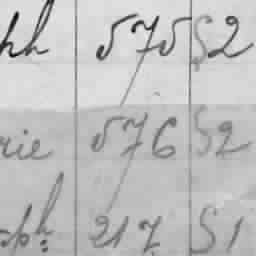 ph 575 S2
rie 576 S2
ph. 217 S1